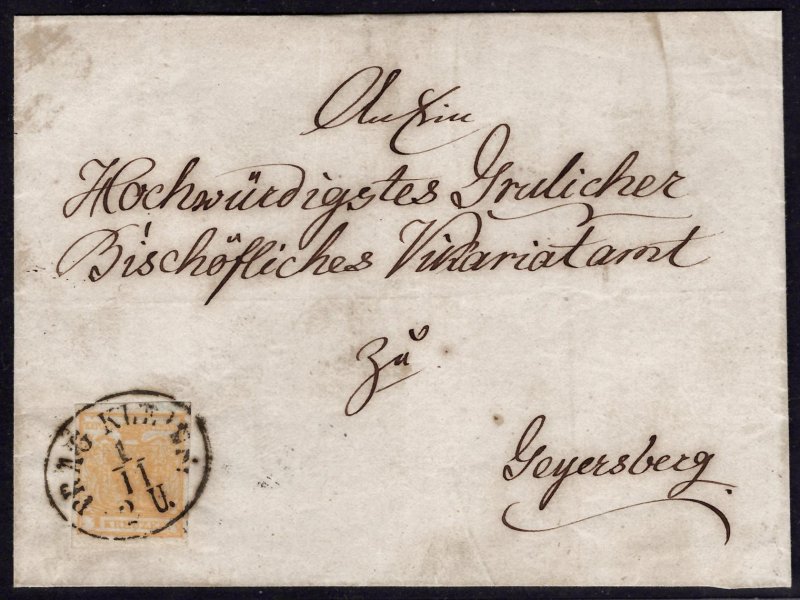 An Ein
Hochwürdigstes Grulicher
Bischöfliches Vikariatamt
zu
Geyersberg.
PRAG KLEINS.
1
11
2 U.
1 KREUZER